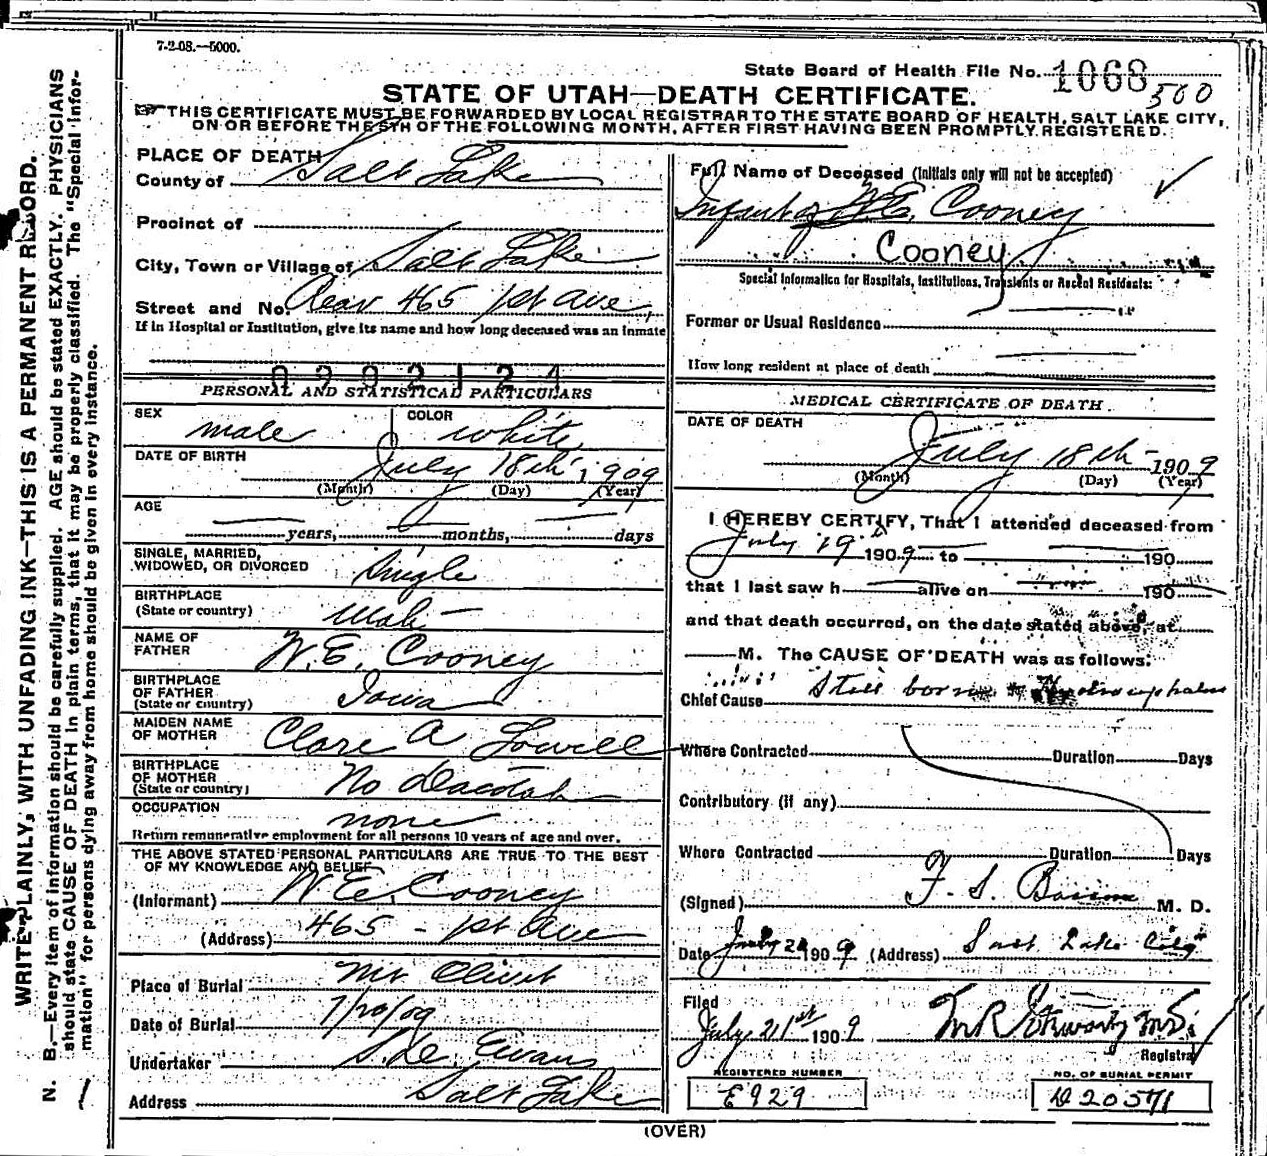 7-2-08.—5000.
State Board of Health File No. 1068 500
STATE OF UTAH—DEATH CERTIFICATE.
THIS CERTIFICATE MUST BE FORWARDED BY LOCAL REGISTRAR TO THE STATE BOARD OF HEALTH, SALT LAKE CITY,
ON OR BEFORE THE 5TH OF THE FOLLOWING MONTH, AFTER FIRST HAVING BEEN PROMPTLY REGISTERED.
WRITE PLAINLY, WITH UNFADING INK—THIS IS A PERMANENT RECORD.
N. B.—Every item of information should be carefully supplied. AGE should be stated EXACTLY. PHYSICIANS
should state CAUSE OF DEATH in plain terms, that it may be properly classified. The "Special Infor-
mation" for persons dying away from home should be given in every instance.
1
PLACE OF DEATH
County of Salt Lake
Precinct of
City, Town or Village of Salt Lake
Street and No. Rear 465 1st Ave,
If in Hospital or Institution, give its name and how long deceased was an inmate
PERSONAL AND STATISTICAL PARTICULARS
SEX male COLOR white
DATE OF BIRTH July 18th 1909
(Month) (Day) (Year)
AGE
years, months, days
SINGLE, MARRIED,
WIDOWED, OR DIVORCED Single
BIRTHPLACE
(State or country) Utah
NAME OF
FATHER W. E. Cooney
BIRTHPLACE
OF FATHER
(State or country) Iowa
MAIDEN NAME
OF MOTHER Clare A Lowell
BIRTHPLACE
OF MOTHER
(State or country) No Dacotah
OCCUPATION none
Return remunerative employment for all persons 10 years of age and over.
THE ABOVE STATED PERSONAL PARTICULARS ARE TRUE TO THE BEST
OF MY KNOWLEDGE AND BELIEF
(Informant) W. E. Cooney
(Address) 465 - 1st Ave
Place of Burial Mt Olivet
Date of Burial 7/20/09
Undertaker Evans
Address Salt Lake
Full Name of Deceased (Initials only will not be accepted)
Infant of W. E. Cooney
Cooney
Special Information for Hospitals, Institutions, Transients or Recent Residents:
Former or Usual Residence
How long resident at place of death
MEDICAL CERTIFICATE OF DEATH
DATE OF DEATH
July 18th 1909
(Month) (Day) (Year)
I HEREBY CERTIFY, That I attended deceased from
July 19th 1909 to 190
that I last saw h alive on 190
and that death occurred, on the date stated above, at
M. The CAUSE OF DEATH was as follows:
Chief Cause Still born Hydrocephalus
Where Contracted Duration Days
Contributory (if any)
Where Contracted Duration Days
(Signed) F. S. M. D.
Date July 1909 (Address) Salt Lake City
Filed
July 21st 1909
Registrar
REGISTERED NUMBER
E929
NO. OF BURIAL PERMIT
D 20571
(OVER)